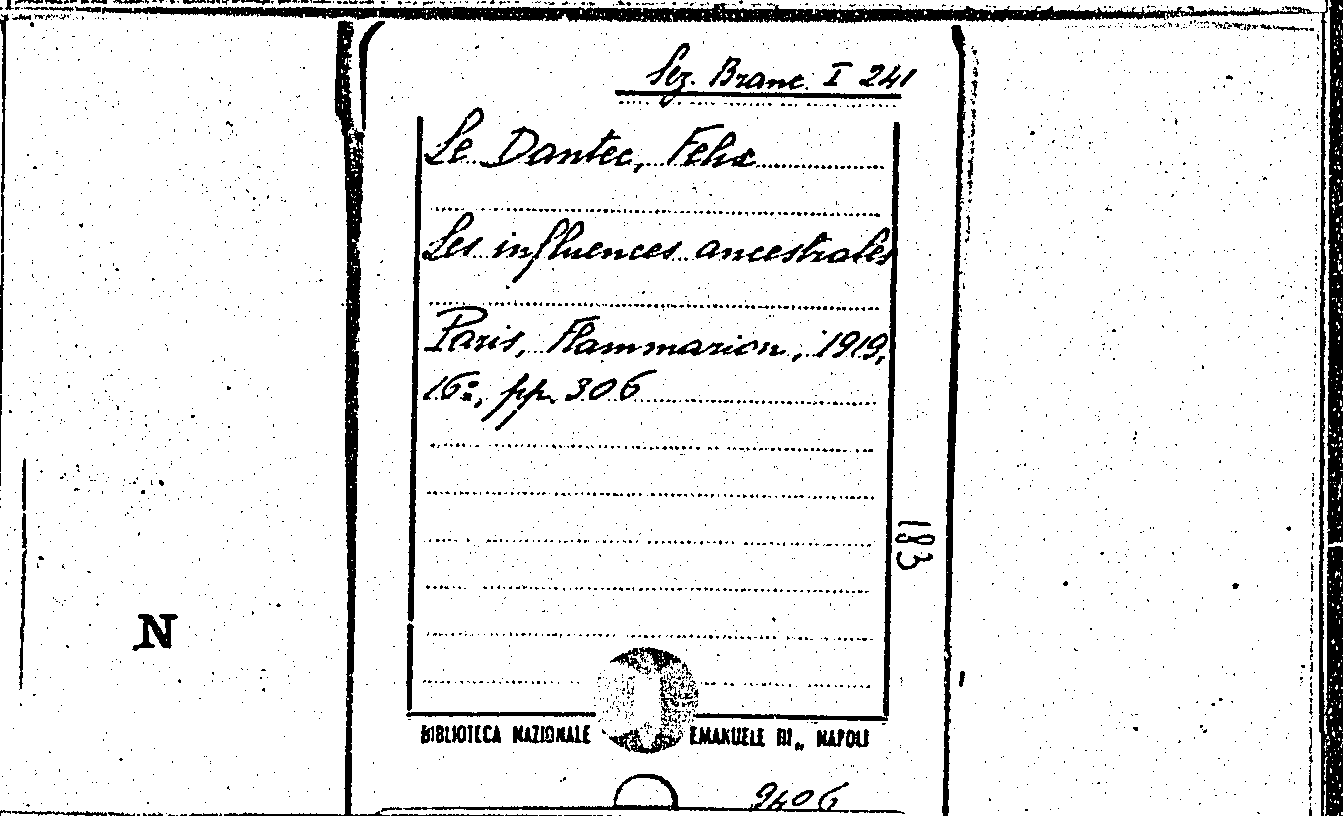 Sez. Branc. I 241
Le Dantec, Felix
Les influences ancestrales
Paris, Flammarion, 1919,
16º, pp. 306
183
N
BIBLIOTECA NAZIONALE EMANUELE III„ NAPOLI
9406